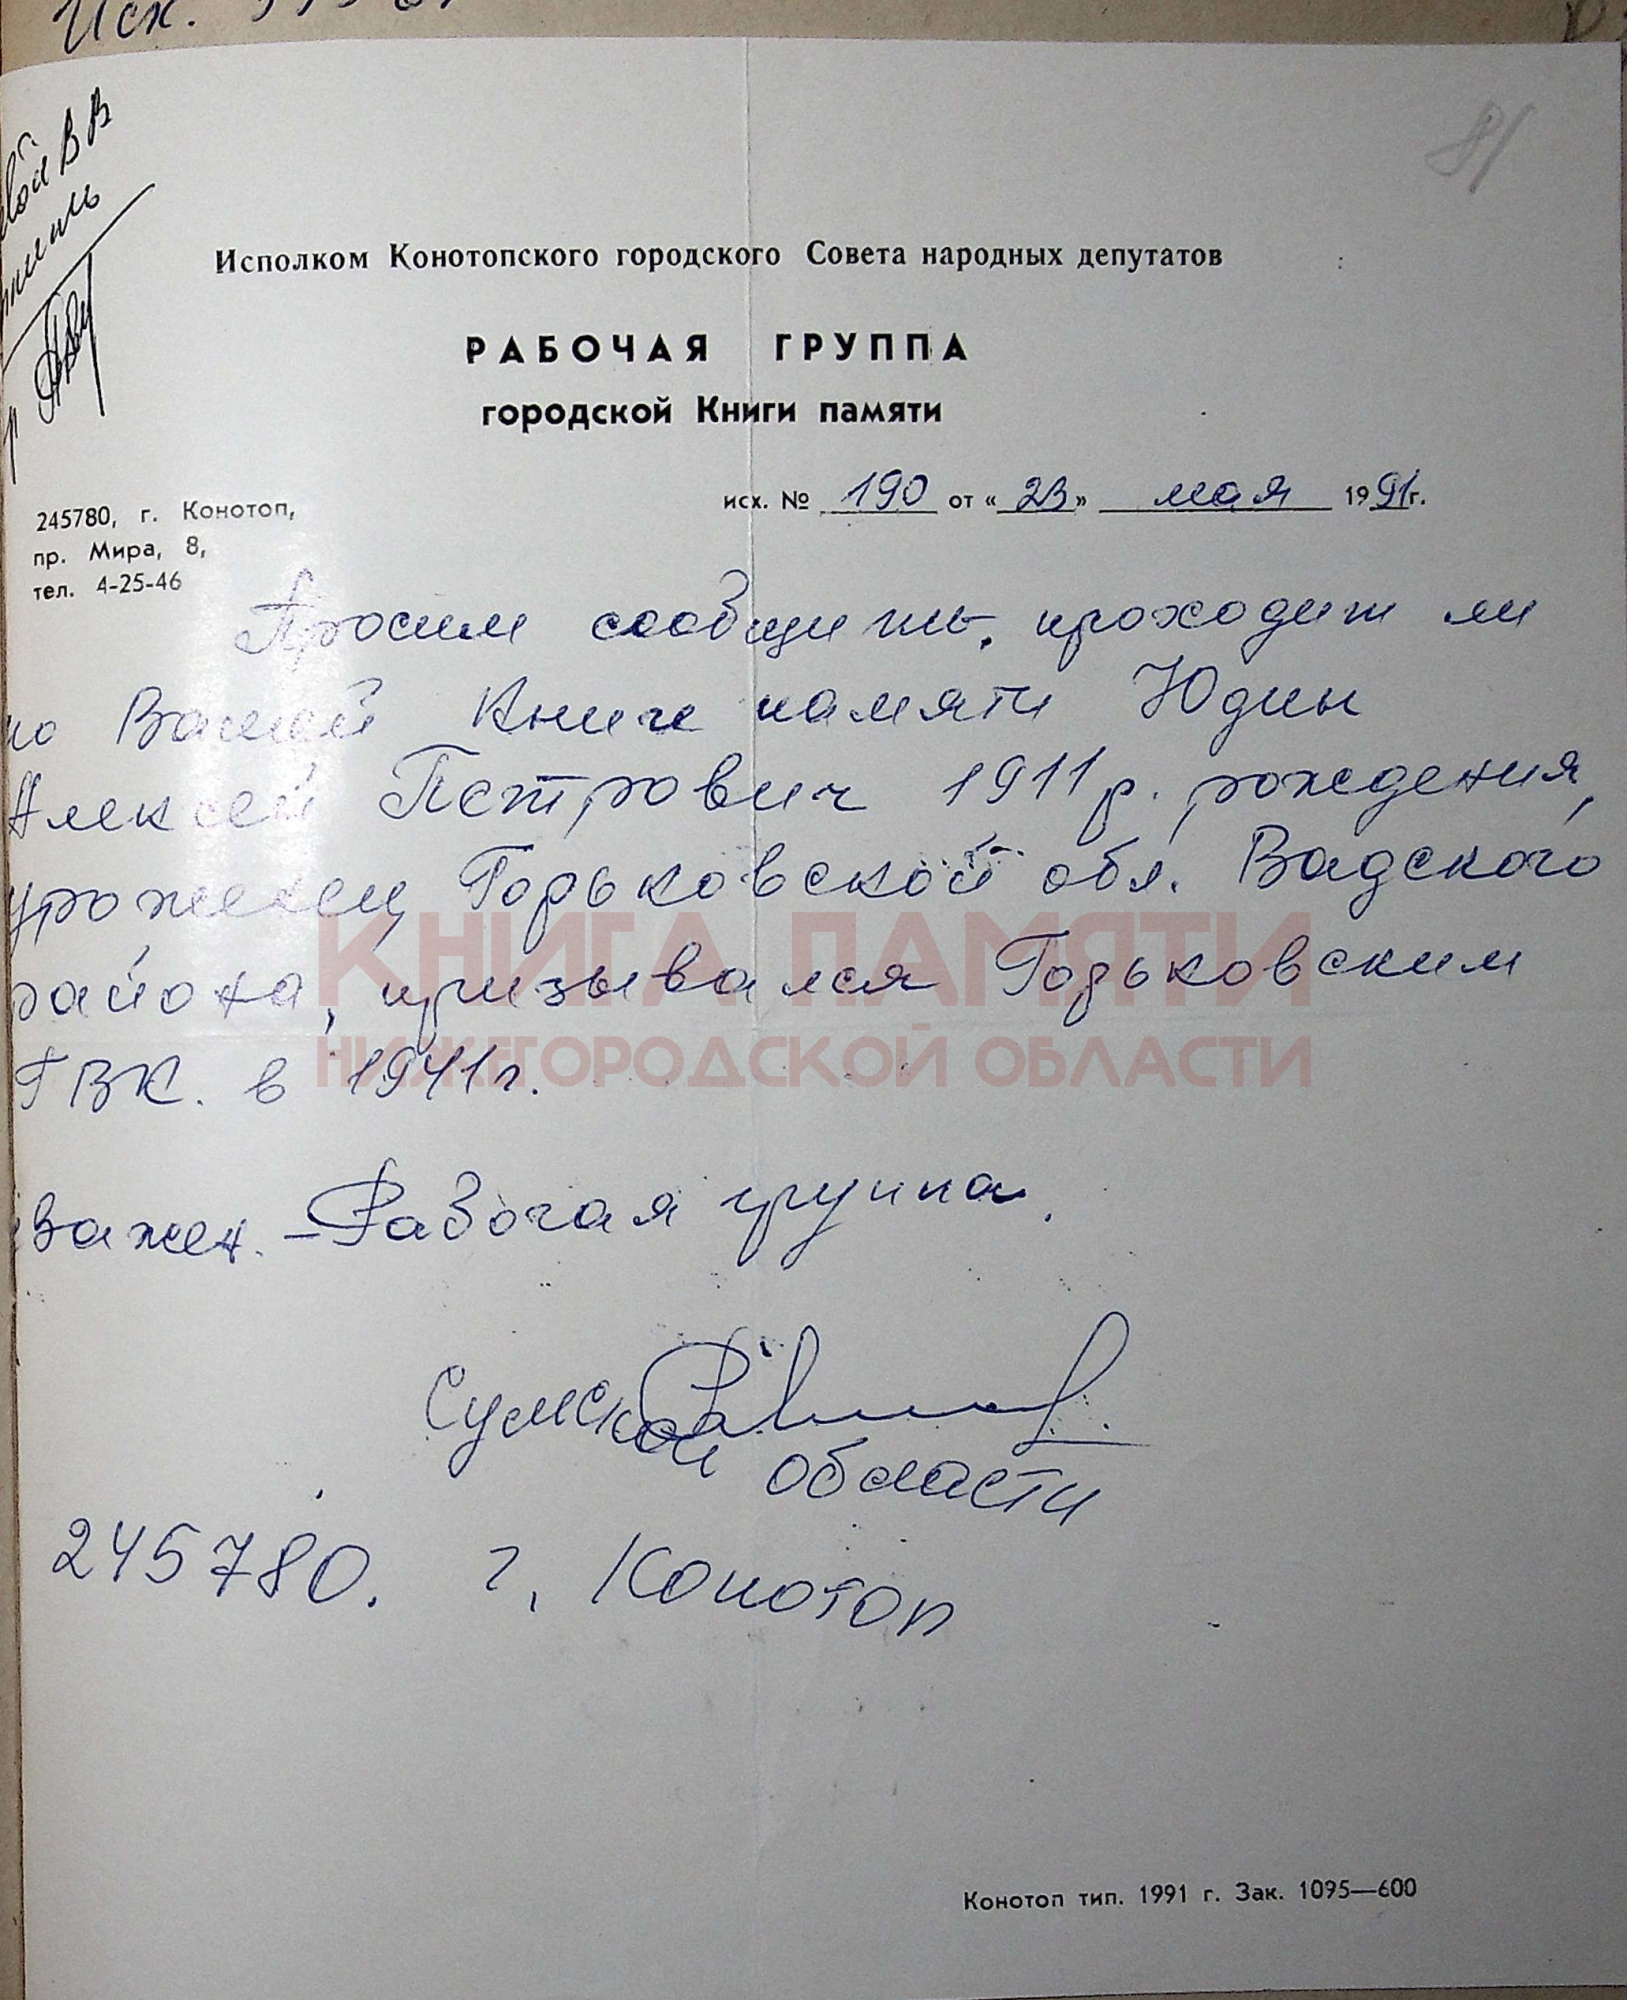 Исх.
81
вой В В
Исполком Конотопского городского Совета народных депутатов
РАБОЧАЯ ГРУППА
городской Книги памяти
исх. № 190 от «23» мая 1991г.
245780, г. Конотоп,
пр. Мира, 8,
тел. 4-25-46
Просим сообщить, проходит ли
по Вашей Книге памяти Юдин
Алексей Петрович 1911 р. рождения,
уроженец Горьковской обл. Вадского
района, призывался Горьковским
ГВК. в 1941г.
КНИГА ПАМЯТИ
НИЖЕГОРОДСКОЙ ОБЛАСТИ
важен. – Рабочая группа.
Сумской области
245780. г. Конотоп
Конотоп тип. 1991 г. Зак. 1095—600